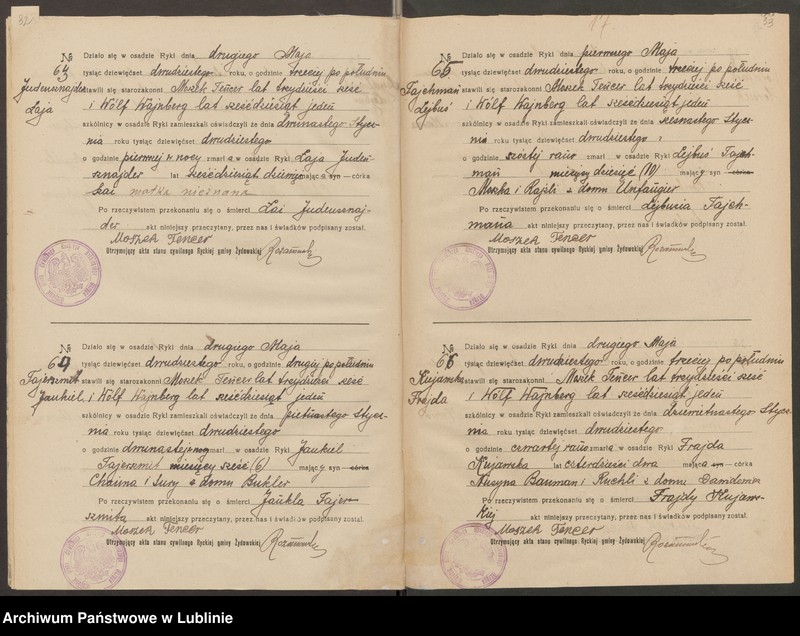 32
№ Działo się w osadzie Ryki dnia drugiego Maja
63 tysiąc dziewięćset dwudziestego roku, o godzinie trzeciej po południu
Judensznajder stawili się starozakonni Moszek Tencer lat trzydzieści sześć
Łaja i Wólf Wajnberg lat sześćdziesiąt jeden
szkólnicy w osadzie Ryki zamieszkali oświadczyli że dnia dwunastego Stycz-
nia roku tysiąc dziewięćset dwudziestego
o godzinie pierwszej w nocy zmarła w osadzie Ryki Łaja Juden-
sznajder lat sześćdziesiąt mająca syn córka
matka nieznana
Po rzeczywistem przekonaniu się o śmierci Łai Judensznaj-
der akt niniejszy przeczytany, przez nas i świadków podpisany został.
Moszek Tencer
Utrzymujący akta stanu cywilnego Ryckiej gminy Żydowskiej
№ Działo się w osadzie Ryki dnia drugiego Maja
64 tysiąc dziewięćset dwudziestego roku, o godzinie drugiej po południu
Fajerszmit stawili się starozakonni Moszek Tencer lat trzydzieści sześć
Jankiel i Wólf Wajnberg lat sześćdziesiąt jeden
szkólnicy w osadzie Ryki zamieszkali oświadczyli że dnia piętnastego Stycz-
nia roku tysiąc dziewięćset dwudziestego
o godzinie dwunastej w nocy zmarł w osadzie Ryki Jankiel
Fajerszmit miesięcy sześć (6) mający syn córka
Chaima i Sury z domu Bukler
Po rzeczywistem przekonaniu się o śmierci Jankla Fajer-
szmita akt niniejszy przeczytany, przez nas i świadków podpisany został.
Moszek Tencer
Utrzymujący akta stanu cywilnego Ryckiej gminy Żydowskiej
17
33
№ Działo się w osadzie Ryki dnia pierwszego Maja
65 tysiąc dziewięćset dwudziestego roku, o godzinie trzeciej po południu
Fajchman stawili się starozakonni Moszek Tencer lat trzydzieści sześć
Lejbuś i Wólf Wajnberg lat sześćdziesiąt jeden
szkólnicy w osadzie Ryki zamieszkali oświadczyli że dnia szesnastego Stycz-
nia roku tysiąc dziewięćset dwudziestego
o godzinie szóstej rano zmarł w osadzie Ryki Lejbuś Fajch-
man miesięcy dziesięć (10) mający syn córka
Moszka i Rajzli z domu
Po rzeczywistem przekonaniu się o śmierci Lejbusia Fajch-
mana akt niniejszy przeczytany, przez nas i świadków podpisany został.
Moszek Tencer
Utrzymujący akta stanu cywilnego Ryckiej gminy Żydowskiej
№ Działo się w osadzie Ryki dnia drugiego Maja
66 tysiąc dziewięćset dwudziestego roku, o godzinie trzeciej po południu
Kujawska stawili się starozakonni Moszek Tencer lat trzydzieści sześć
Frajda i Wólf Wajnberg lat sześćdziesiąt jeden
szkólnicy w osadzie Ryki zamieszkali oświadczyli że dnia dziewiętnastego Stycz-
nia roku tysiąc dziewięćset dwudziestego
o godzinie czwartej rano zmarła w osadzie Ryki Frajda
Kujawska lat czterdzieści dwa mająca syn córka
Nusyna Bauman i Ruchli z domu
Po rzeczywistem przekonaniu się o śmierci Frajdy Kujaw-
skiej akt niniejszy przeczytany, przez nas i świadków podpisany został.
Moszek Tencer
Utrzymujący akta stanu cywilnego Ryckiej gminy Żydowskiej
Archiwum Państwowe w Lublinie